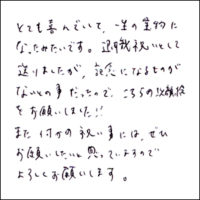 とても喜んでいて、一生の宝物に
なったみたいです。退職祝いとして
送りましたが、記念になるものが
ないとの事だったので、こちらの似顔絵
をお願いしました!!
また何かの祝い事には、ぜひ
お願いしたいと思っていますので
よろしくお願いします。